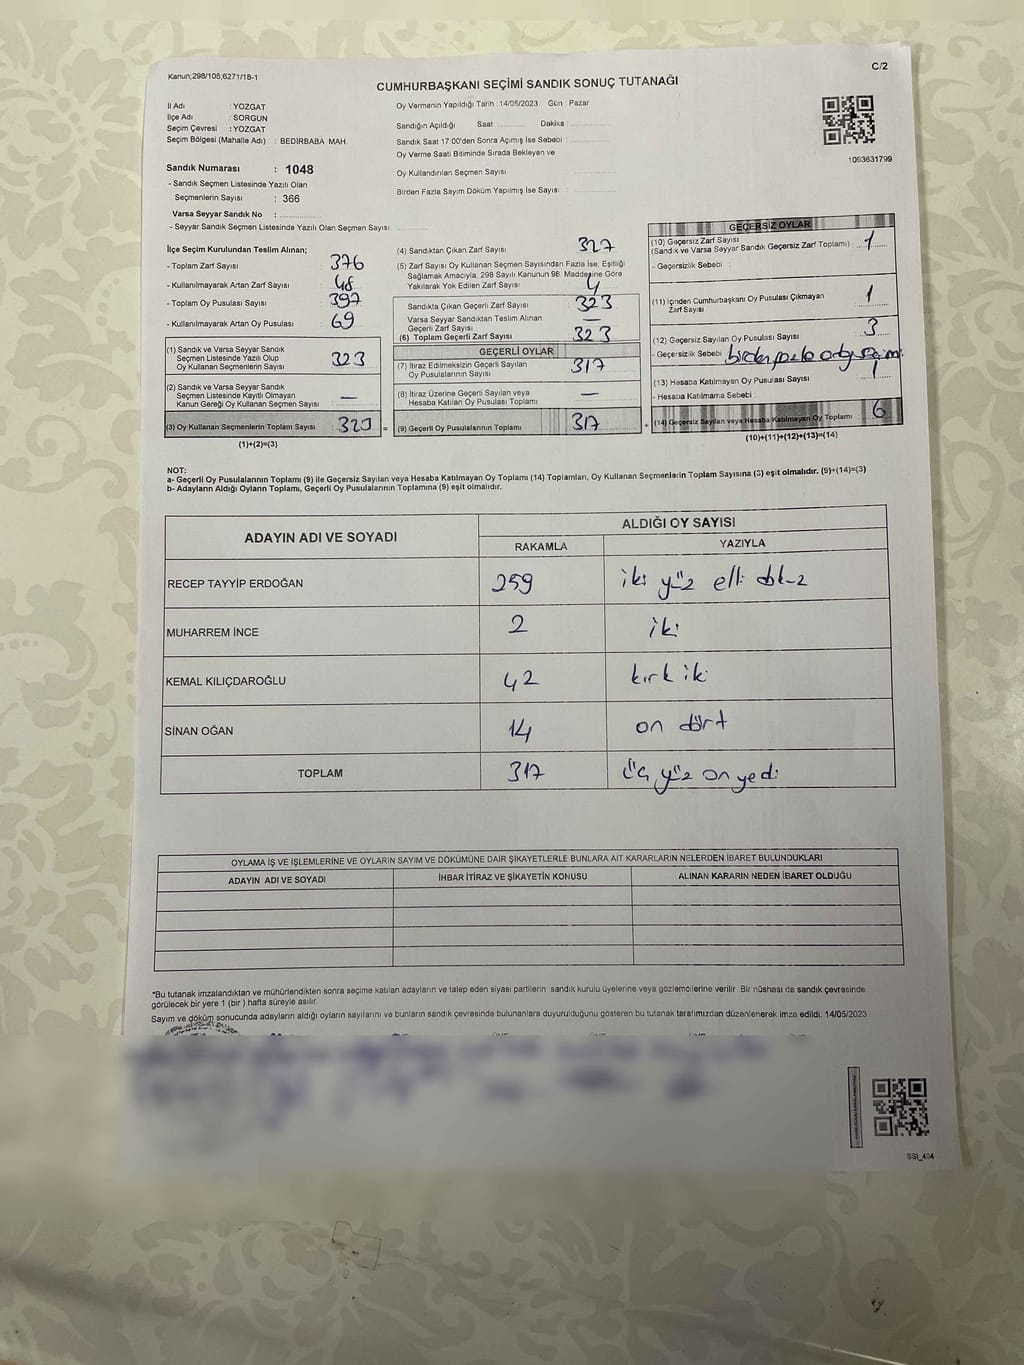 Kanun,298/105,6271/18-1
C/2
CUMHURBAŞKANI SEÇİMİ SANDIK SONUÇ TUTANAĞI
İl Adı : YOZGAT
İlçe Adı : SORGUN
Seçim Çevresi : YOZGAT
Seçim Bölgesi (Mahalle Adı) : BEDİRBABA MAH.
Sandık Numarası : 1048
- Sandık Seçmen Listesinde Yazılı Olan
Seçmenlerin Sayısı : 366
Varsa Seyyar Sandık No :
- Seyyar Sandık Seçmen Listesinde Yazılı Olan Seçmen Sayısı:
Oy Vermenin Yapıldığı Tarih : 14/05/2023 Gün : Pazar
Sandığın Açıldığı Saat : Dakika :
Sandık Saat 17:00'den Sonra Açımış İse Sebebi :
Oy Verme Saati Bitiminde Sırada Bekleyen ve
Oy Kullandırılan Seçmen Sayısı
Birden Fazla Sayım Döküm Yapılmış İse Sayısı :
1093631799
İlçe Seçim Kurulundan Teslim Alınan;
- Toplam Zarf Sayısı : 376
- Kullanılmayarak Artan Zarf Sayısı : 48
- Toplam Oy Pusulası Sayısı : 397
- Kullanılmayarak Artan Oy Pusulası : 69
(1) Sandık ve Varsa Seyyar Sandık
Seçmen Listesinde Yazılı Olup
Oy Kullanan Seçmenlerin Sayısı : 323
(2) Sandık ve Varsa Seyyar Sandık
Seçmen Listesinde Kayıtlı Olmayan
Kanun Gereği Oy Kullanan Seçmen Sayısı : —
(3) Oy Kullanan Seçmenlerin Toplam Sayısı : 323 =
(1)+(2)=(3)
(4) Sandıktan Çıkan Zarf Sayısı : 327
(5) Zarf Sayısı Oy Kullanan Seçmen Sayısından Fazla İse, Eşitliği
Sağlamak Amacıyla, 298 Sayılı Kanunun 98. Maddesine Göre
Yakılarak Yok Edilen Zarf Sayısı : 4
Sandıkta Çıkan Geçerli Zarf Sayısı : 323
Varsa Seyyar Sandıktan Teslim Alınan
Geçerli Zarf Sayısı : —
(6) Toplam Geçerli Zarf Sayısı : 323
GEÇERLİ OYLAR
(7) İtiraz Edilmeksizin Geçerli Sayılan
Oy Pusulalarının Sayısı : 317
(8) İtiraz Üzerine Geçerli Sayılan veya
Hesaba Katılan Oy Pusulası Toplamı : —
(9) Geçerli Oy Pusulalarının Toplamı : 317 +
GEÇERSİZ OYLAR
(10) Geçersiz Zarf Sayısı
(Sandık ve Varsa Seyyar Sandık Geçersiz Zarf Toplamı) : 1
- Geçersizlik Sebebi :
(11) İçinden Cumhurbaşkanı Oy Pusulası Çıkmayan
Zarf Sayısı : 1
(12) Geçersiz Sayılan Oy Pusulası Sayısı : 3
- Geçersizlik Sebebi :
(13) Hesaba Katılmayan Oy Pusulası Sayısı : 1
- Hesaba Katılmama Sebebi :
(14) Geçersiz Sayılan veya Hesaba Katılmayan Oy Toplamı : 6
(10)+(11)+(12)+(13)=(14)
NOT:
a- Geçerli Oy Pusulalarının Toplamı (9) ile Geçersiz Sayılan veya Hesaba Katılmayan Oy Toplamı (14) Toplamları, Oy Kullanan Seçmenlerin Toplam Sayısına (3) eşit olmalıdır. (9)+(14)=(3)
b- Adayların Aldığı Oyların Toplamı, Geçerli Oy Pusulalarının Toplamına (9) eşit olmalıdır.
ADAYIN ADI VE SOYADI ALDIĞI OY SAYISI
RAKAMLA YAZIYLA
RECEP TAYYİP ERDOĞAN 259 iki yüz elli dokuz
MUHARREM İNCE 2 iki
KEMAL KILIÇDAROĞLU 42 kırk iki
SİNAN OĞAN 14 on dört
TOPLAM 317 üç yüz on yedi
OYLAMA İŞ VE İŞLEMLERİNE VE OYLARIN SAYIM VE DÖKÜMÜNE DAİR ŞİKAYETLERLE BUNLARA AİT KARARLARIN NELERDEN İBARET BULUNDUKLARI
ADAYIN ADI VE SOYADI İHBAR İTİRAZ VE ŞİKAYETİN KONUSU ALINAN KARARIN NEDEN İBARET OLDUĞU
*Bu tutanak imzalandıktan ve mühürlendikten sonra seçime katılan adayların ve talep eden siyasi partilerin sandık kurulu üyelerine veya gözlemcilerine verilir. Bir nüshası da sandık çevresinde
görülecek bir yere 1 (bir) hafta süreyle asılır.
Sayım ve döküm sonucunda adayların aldığı oyların sayılarını ve bunların sandık çevresinde bulunanlara duyurulduğunu gösteren bu tutanak tarafımızdan düzenlenerek imza edildi. 14/05/2023
SSI_404